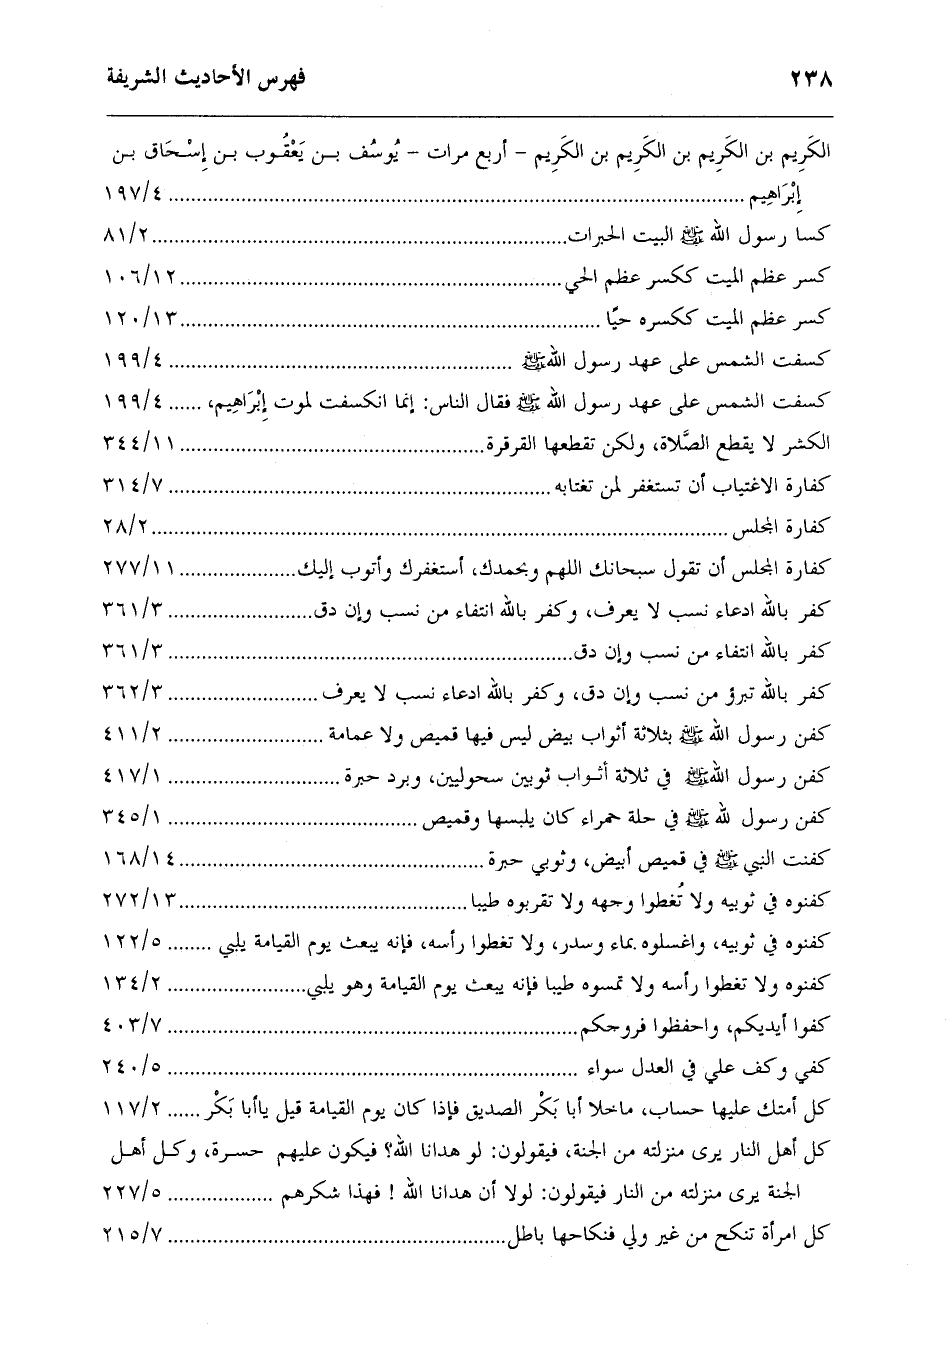 ٢٣٨ فهرس الأحاديث الشريفة
الكَرِيم بن الكَرِيم بن الكَرِيم بن الكَرِيم – أربع مرات – يُوسُف بـن يَعْقُـوب بـن إِسْـحَاق بـن
إِبْرَاهِيم ........ ١٩٧/٤
كسا رسول الله ﷺ البيت الحبرات........ ٨١/٢
كسر عظم الميت ككسر عظم الحي........ ١٠٦/١٢
كسر عظم الميت ككسره حيًا ........ ١٢٠/١٣
كسفت الشمس على عهد رسول الله ﷺ ........ ١٩٩/٤
كسفت الشمس على عهد رسول الله ﷺ فقال الناس: إنما انكسفت لموت إِبْرَاهِيم، ...... ١٩٩/٤
الكشر لا يقطع الصَّلاة، ولكن تقطعها القرقرة........ ٣٤٤/١١
كفارة الاغتياب أن تستغفر لمن تغتابه ........ ٣١٤/٧
كفارة المجلس ........ ٢٨/٢
كفارة المجلس أن تقول سبحانك اللهم وبحمدك، أستغفرك وأتوب إليك........ ٢٧٧/١١
كفر بالله ادعاء نسب لا يعرف، وكفر بالله انتفاء من نسب وإن دق........ ٣٦١/٣
كفر بالله انتفاء من نسب وإن دق........ ٣٦١/٣
كفر بالله تبرؤ من نسب وإن دق، وكفر بالله ادعاء نسب لا يعرف ........ ٣٦٢/٣
كفن رسول الله ﷺ بثلاثة أثواب بيض ليس فيها قميص ولا عمامة ........ ٤١١/٢
كفن رسول الله ﷺ في ثلاثة أثـواب ثوبين سحوليين، وبرد حبرة ........ ٤١٧/١
كفن رسول لله ﷺ في حلة حمراء كان يلبسها وقميص ........ ٣٤٥/١
كفنت النبي ﷺ في قميص أبيض، وثوبي حبرة ........ ١٦٨/١٤
كفنوه في ثوبيه ولا تُغطوا وجهه ولا تقربوه طيبا ........ ٢٧٢/١٣
كفنوه في ثوبيه، واغسلوه بماء وسدر، ولا تغطوا رأسه، فإنه يبعث يوم القيامة يلبي ........ ١٢٢/٥
كفنوه ولا تغطوا رأسه ولا تمسوه طيبا فإنه يبعث يوم القيامة وهو يلبي........ ١٣٤/٢
كفوا أيديكم، واحفظوا فروجكم........ ٤٠٣/٧
كفي وكف علي في العدل سواء ........ ٢٤٠/٥
كل أمتك عليها حساب، ماخلا أبا بَكْر الصديق فإذا كان يوم القيامة قيل ياأبا بَكْر ...... ١١٧/٢
كل أهل النار يرى منزلته من الجنة، فيقولون: لو هدانا الله؟ فيكون عليهم حسـرة، وكـل أهـل
الجنة يرى منزلته من النار فيقولون: لولا أن هدانا الله ! فهذا شكرهم ........ ٢٢٧/٥
كل امرأة تنكح من غير ولي فنكاحها باطل........ ٢١٥/٧